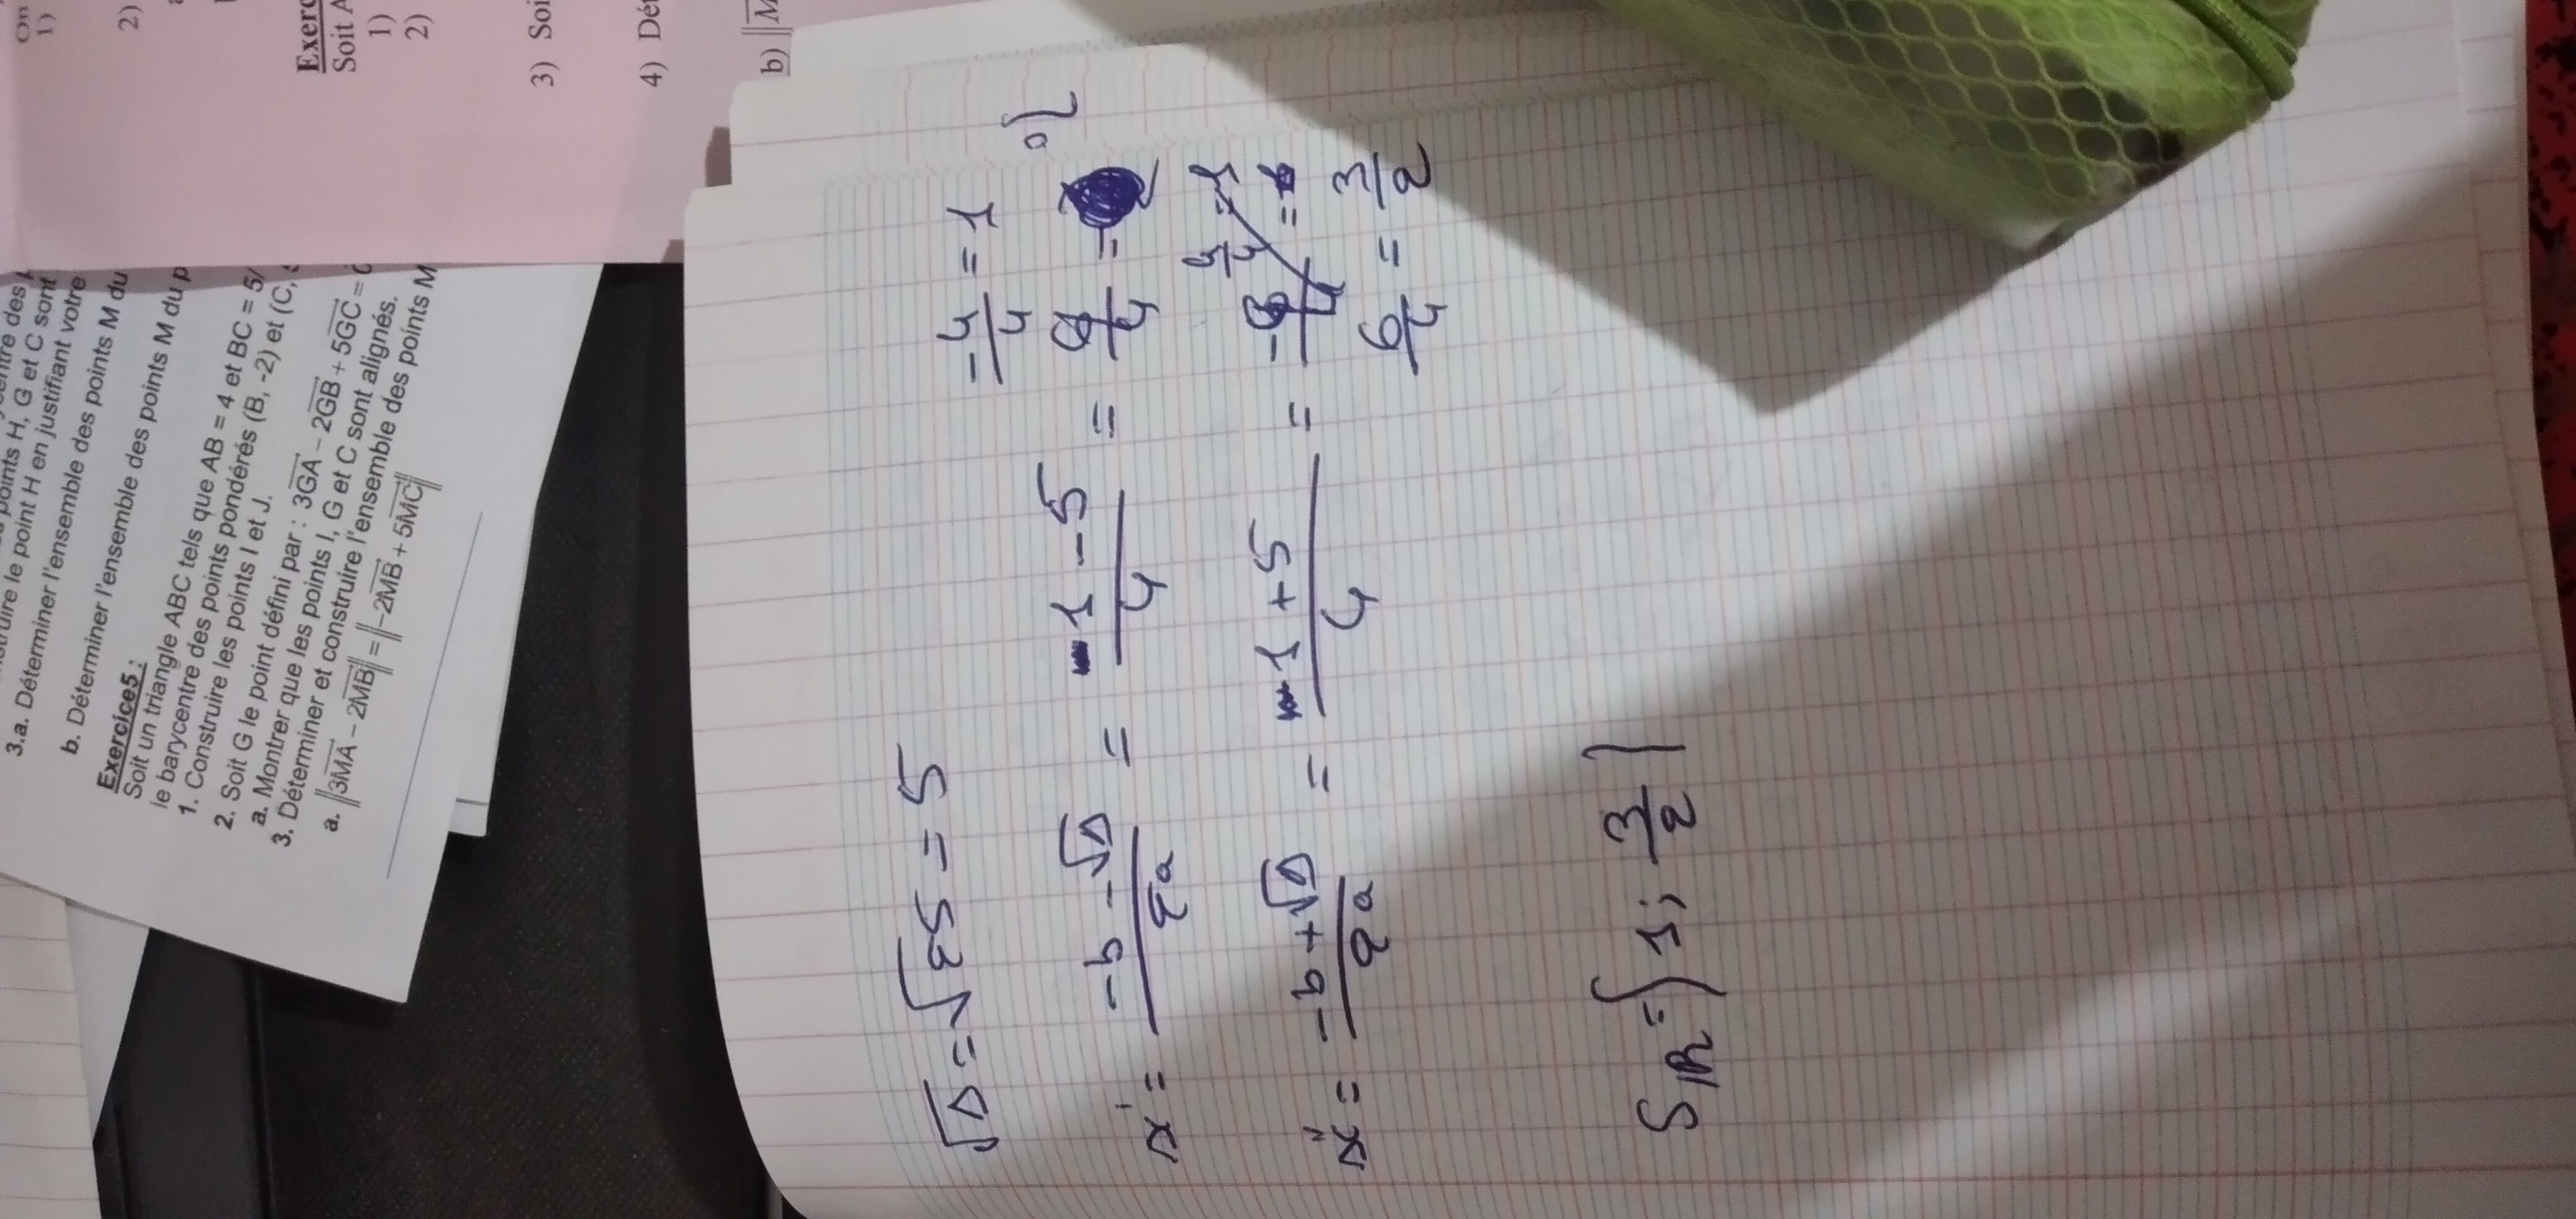 On
1)
2)
Exerc
Soit A
1)
2)
3) Soi
4) Dét
b) ||M
points H, G et C sont
le point H en justifiant votre
3.a. Déterminer l'ensemble des points M du
b. Déterminer l'ensemble des points M du p
Exercice5 :
Soit un triangle ABC tels que AB = 4 et BC = 5/
le barycentre des points pondérés (B, -2) et (C,
1. Construire les points I et J.
2. Soit G le point défini par : 3GA − 2GB + 5GC =
a. Montrer que les points I, G et C sont alignés.
3. Déterminer et construire l'ensemble des points M
a. ||3MA − 2MB|| = ||−2MB + 5MC||
√Δ = √25 = 5
-4/4 = 1
x' = (-b - √Δ)/2a = (-1 - 5)/4 =
4/4 = 1
x'' = (-b + √Δ)/2a = (-1 + 5)/4 =
6/4 = 3/2
Sℝ = {1; 3/2}